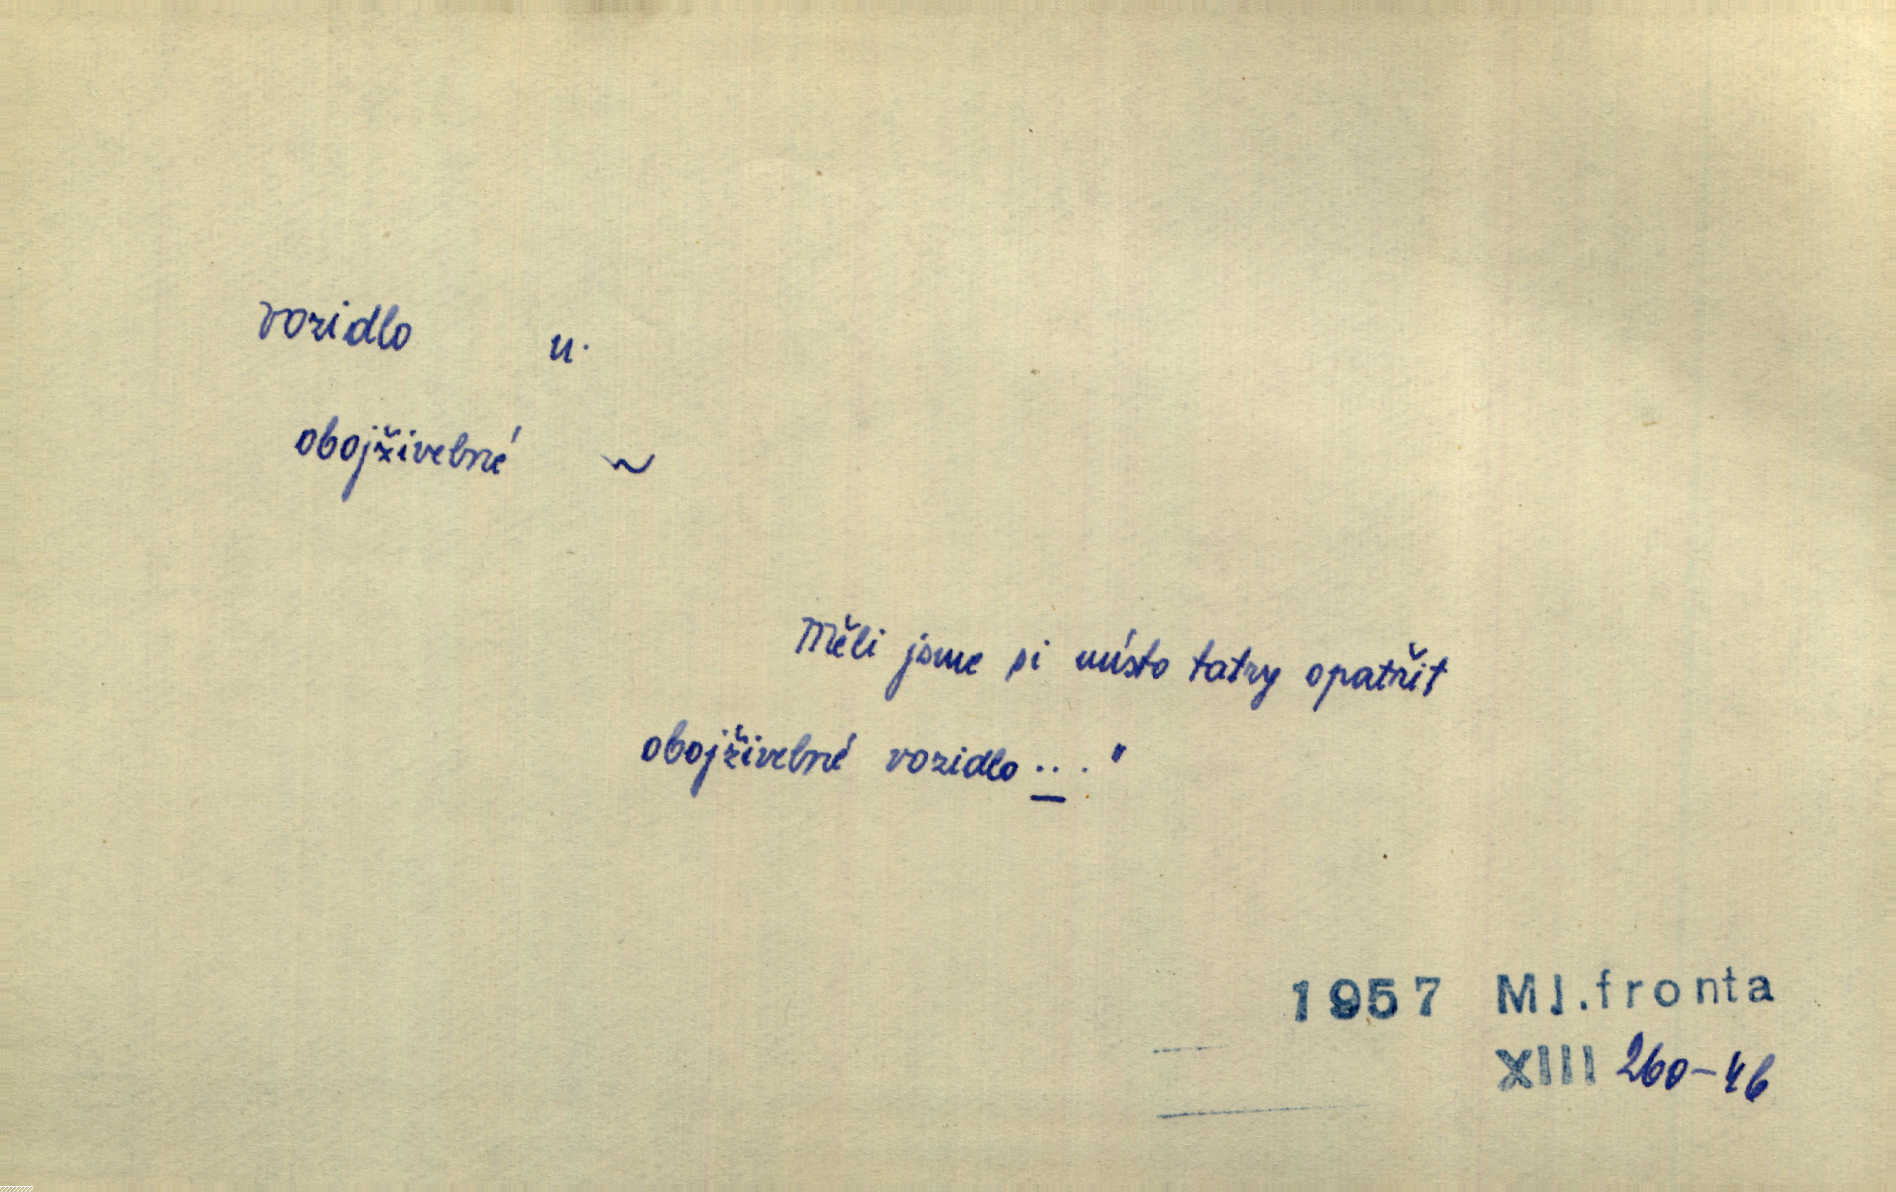 vozidlo n.
obojživelné ~
Měli jsme si místo tatry opatřit
obojživelné vozidlo ... "
1957 Ml.fronta
XIII 260-46